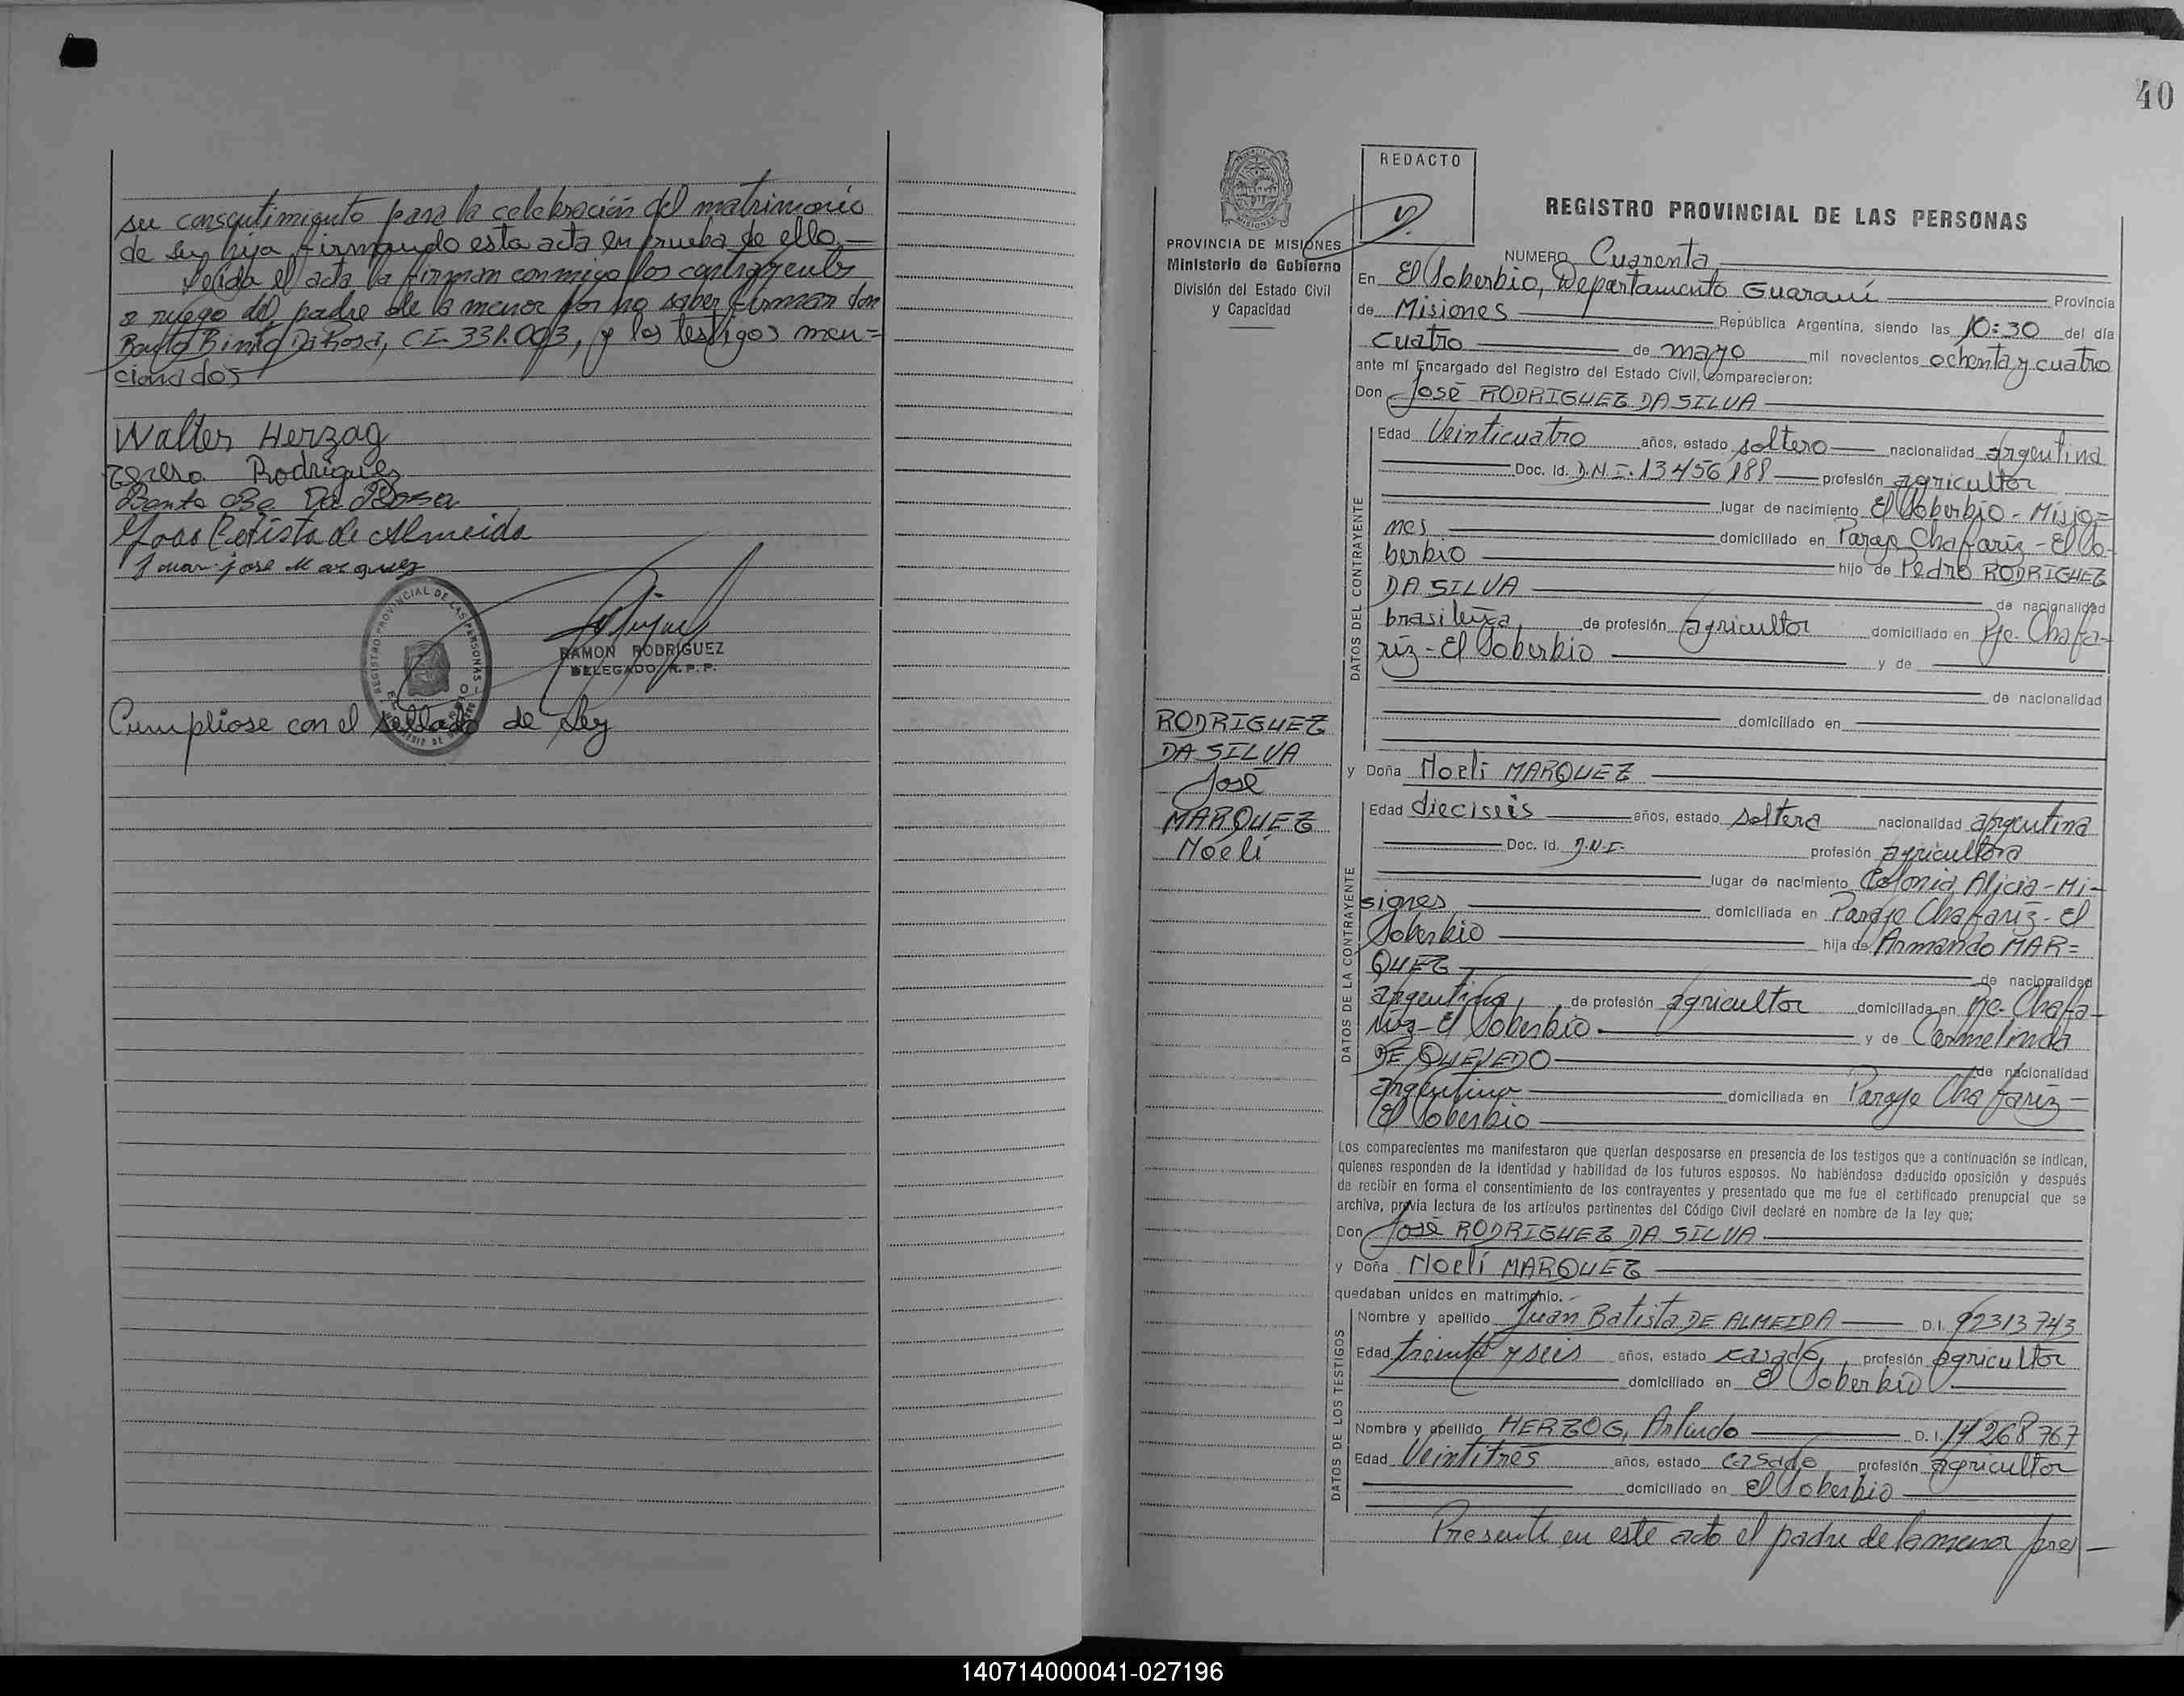 su consentimiento para la celebración del matrimonio
de su hija firmando esta acta en prueba de ello.—
Leida el acta la firman conmigo los contrayentes
a ruego del padre de la menor por no saber firmar don
Da Rosa, CI 331.003, y los testigos men=
cionados
Walter Herzog
Rodriguez
Da Rosa
Joao Batista de Almeida
Juan jose Marquez
REGISTRO PROVINCIAL DE LAS PERSONAS
RAMON RODRIGUEZ
DELEGADO R.P.P.
Cumpliose con el sellado de Ley
40
REDACTO
PROVINCIA DE MISIONES
Ministerio de Gobierno
División del Estado Civil
y Capacidad
REGISTRO PROVINCIAL DE LAS PERSONAS
NUMERO Cuarenta
En El Soberbio, Departamento Guaraní Provincia
de Misiones República Argentina, siendo las 10:30 del día
cuatro de mayo mil novecientos ochenta y cuatro
ante mí Encargado del Registro del Estado Civil, comparecieron:
Don José RODRIGUEZ DA SILVA
DATOS DEL CONTRAYENTE
Edad Veinticuatro años, estado soltero nacionalidad argentina
Doc. Id. D.N.I. 13456188 profesión agricultor
lugar de nacimiento El Soberbio - Misio=
nes domiciliado en Paraje Chafariz - El So-
berbio hijo de Pedro RODRIGUEZ
DA SILVA de nacionalidad
brasileña de profesión agricultor domiciliado en Pje. Chafa-
riz - El Soberbio y de
de nacionalidad
domiciliado en
RODRIGUEZ
DA SILVA
José
MARQUEZ
Noelí
y Doña Noelí MARQUEZ
DATOS DE LA CONTRAYENTE
Edad dieciseis años, estado soltera nacionalidad argentina
Doc. Id. D.N.I. profesión agricultora
lugar de nacimiento Colonia Alicia - Mi-
siones domiciliada en Paraje Chafariz - El
Soberbio hija de Armando MAR=
QUEZ de nacionalidad
argentina, de profesión agricultor domiciliada en Pje. Chafa-
riz - El Soberbio y de Carmelinda
DE QUEVEDO de nacionalidad
argentina domiciliada en Paraje Chafariz -
El Soberbio
Los comparecientes me manifestaron que querían desposarse en presencia de los testigos que a continuación se indican,
quienes responden de la identidad y habilidad de los futuros esposos. No habiéndose deducido oposición y después
de recibir en forma el consentimiento de los contrayentes y presentado que me fue el certificado prenupcial que se
archiva, previa lectura de los artículos pertinentes del Código Civil declaré en nombre de la ley que;
Don José RODRIGUEZ DA SILVA
y Doña Noelí MARQUEZ
quedaban unidos en matrimonio.-
DATOS DE LOS TESTIGOS
Nombre y apellido Juan Batista DE ALMEIDA D.I. 92313743
Edad treinta y seis años, estado casado, profesión agricultor
domiciliado en El Soberbio
Nombre y apellido HERZOG, Arlindo D.I. 14268767
Edad Veintitres años, estado casado profesión agricultor
domiciliado en El Soberbio
Presente en este acto el padre de la menor pres-
140714000041-027196